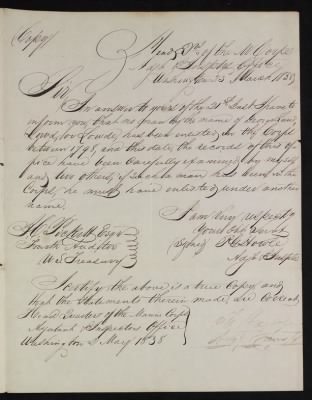 (Copy)
Head Qrs of the M. Corps
Adjt & Inspectors Office
Washington 5th March 1838
Sir,
In answer to yours of the 2d Inst I have to
inform you that no man by the name of
Lowd, or Loude, has been enlisted in the Corps
between 1798, and this date, the records of this of-
fice have been carefully examined by myself
and two others, if such a man has been in the
Corps, he must have enlisted under another
name.
I am very respecty
Your Obt Servt
Signed P G Howle
Adjt & Inspr
Esqr
Fourth Auditor
U.S. Treasury
I certify the above is a true Copy and
that the statements therein made, are correct
Head Quarters of the Marine Corps
Adjutant & Inspectors Office
Washington May 1838